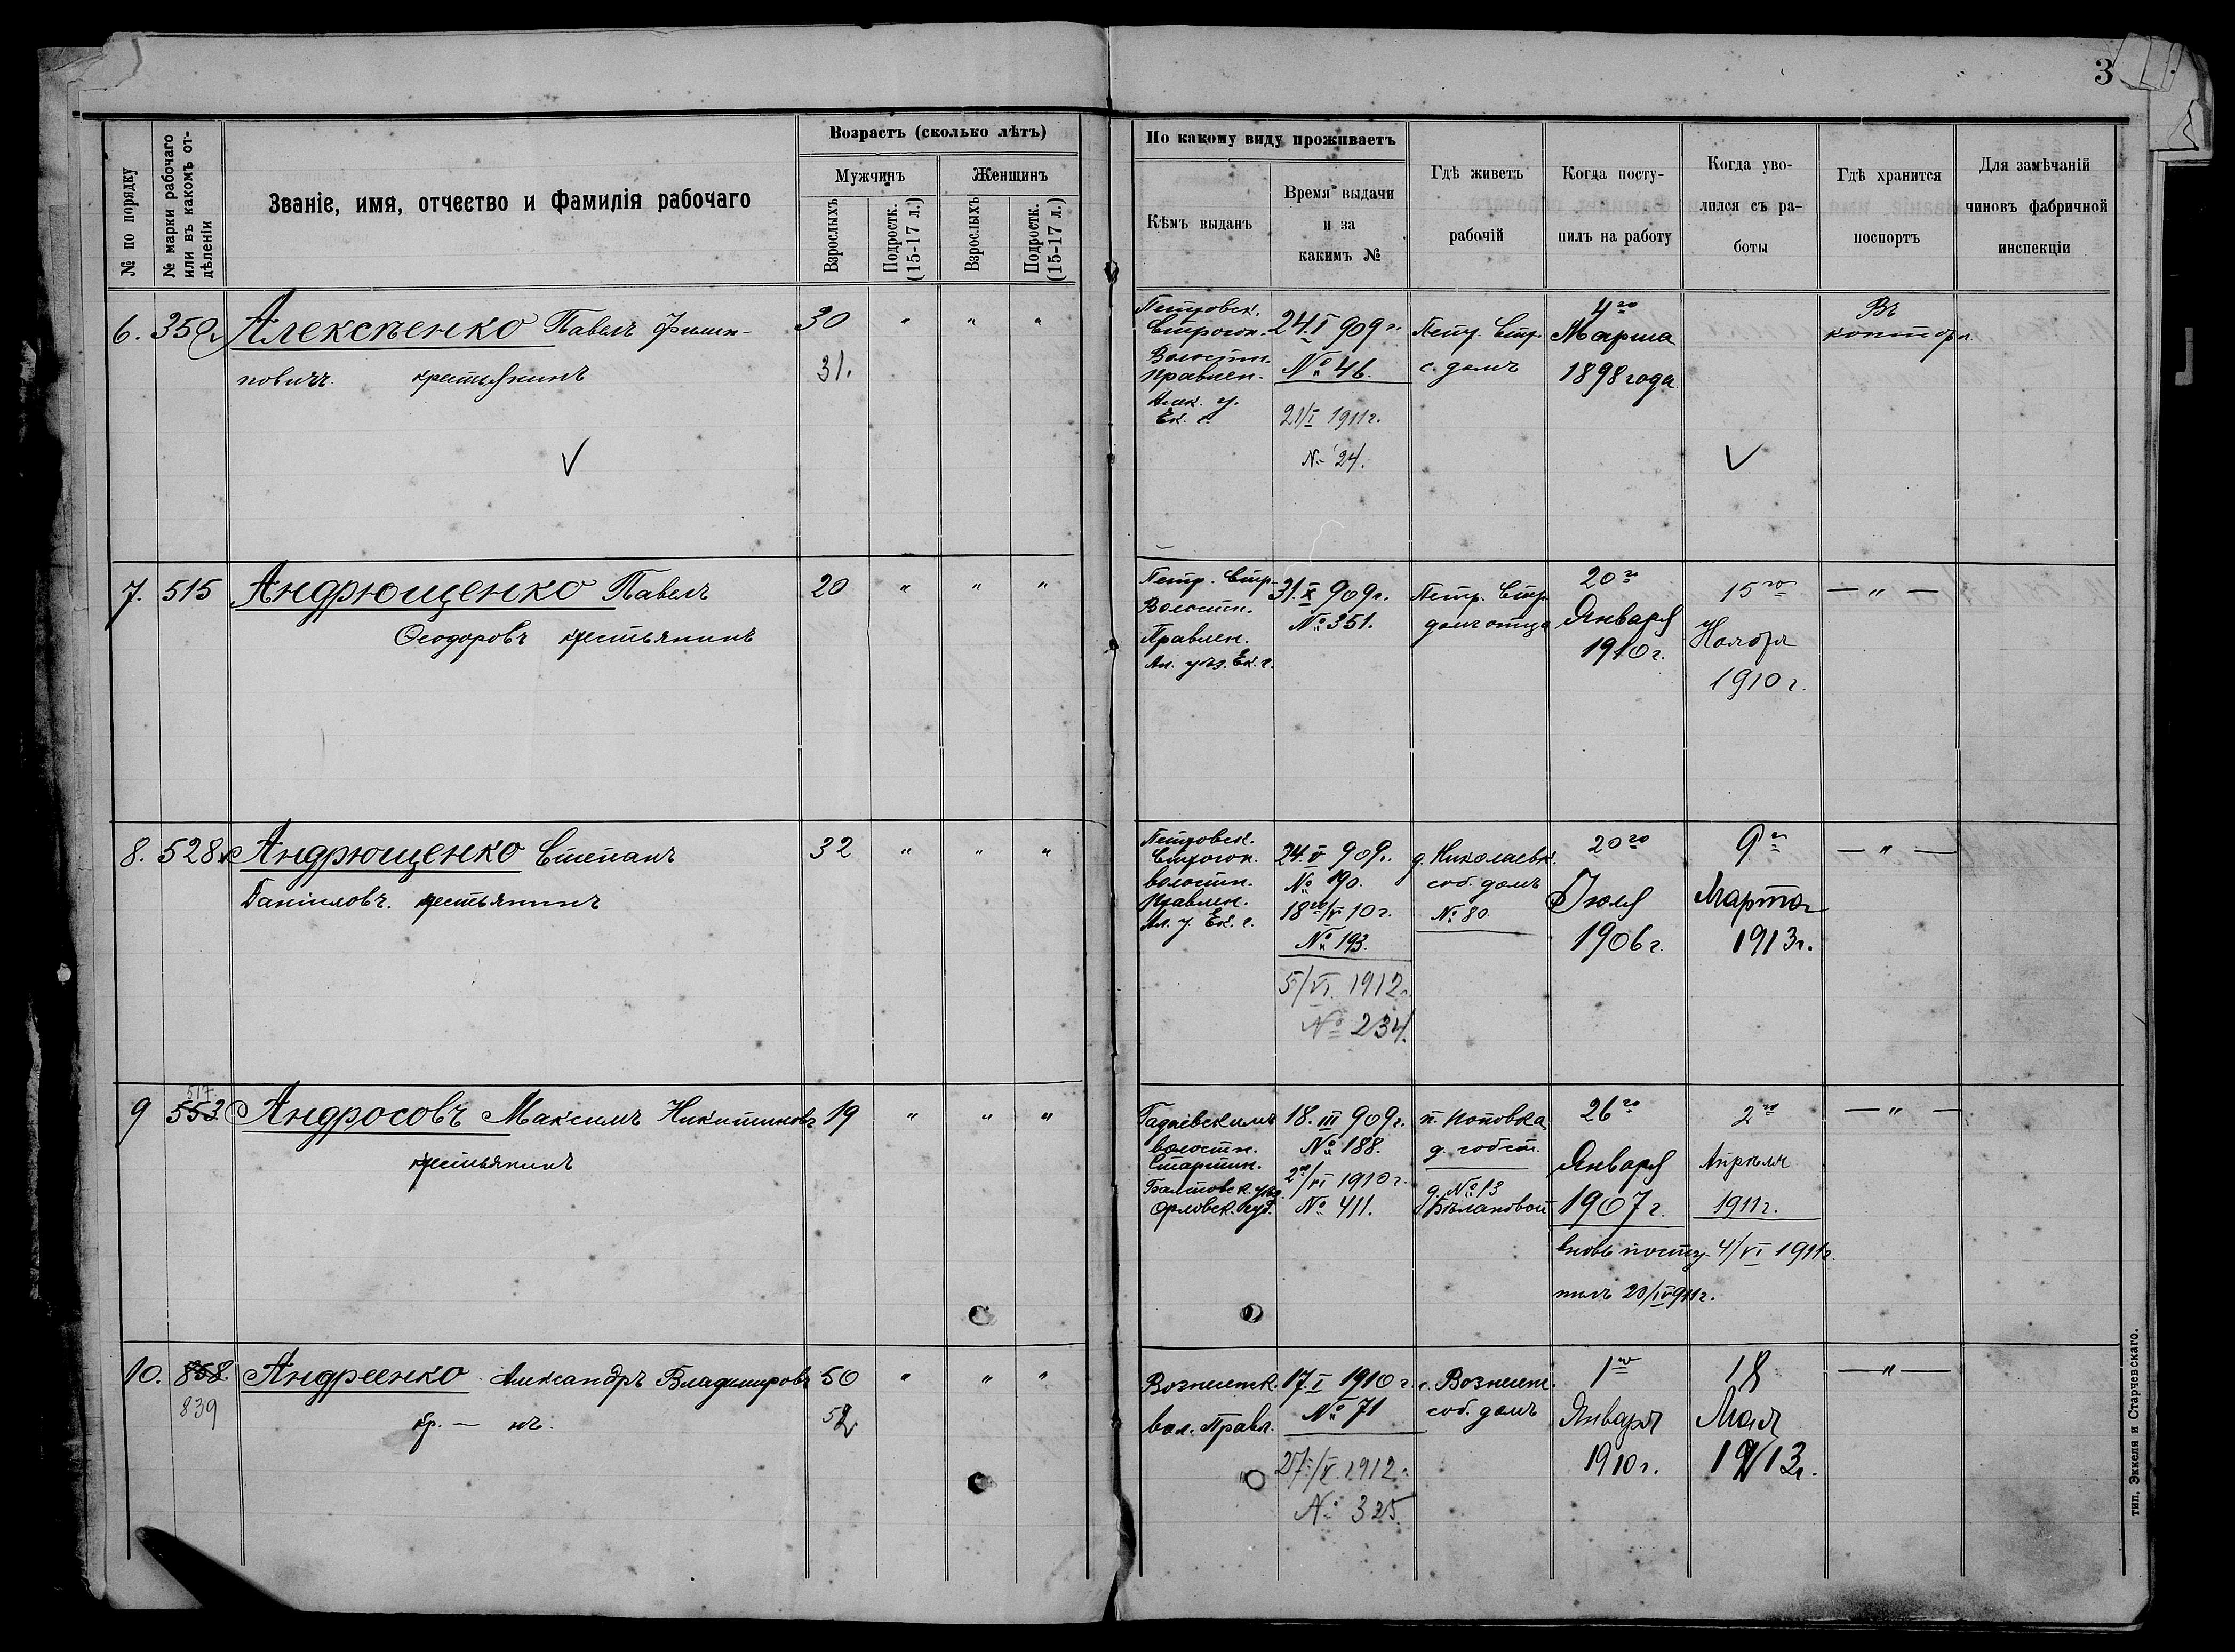 3
№ по порядку
№ марки рабочаго или въ какомъ отдѣленіи
Званіе, имя, отчество и фамилія рабочаго
Возрастъ (сколько лѣтъ)
Мужчинъ
Женщинъ
Взрослыхъ
Подростк. (15-17 л.)
Взрослыхъ
Подростк. (15-17 л.)
По какому виду проживаетъ
Кѣмъ выданъ
Время выдачи
и за
какимъ №
Гдѣ живетъ
рабочій
Когда посту-
пилъ на работу
Когда уво-
лился съ ра-
боты
Гдѣ хранится
поспортъ
Для замѣчаній
чиновъ фабричной
инспекціи
6. 350
Алексѣенко Павелъ Филип-
повичъ. крестьянинъ
30 " " "
31.
Петровск.
Строгон.
Волостн.
правлен.
Алек. у.
Ек. г.
24.I 909 г.
№ 46.
21/I 1911г.
№ 24.
Петр. Стр.
с. домъ
4го
Марта
1898 года
Въ
контор
7. 515
Андрющенко Павелъ
Ѳеодоровъ крестьянинъ
20 " " "
Петр. Стр.
Волостн.
Правлен.
Ал. уѣз. Ек. г.
31.X 909г.
№ 351.
Петр. Стр.
домъ отца
20го
Января
1910 г.
15го
Ноября
1910 г.
— " —
8. 528
Андрющенко Степанъ
Даніиловъ. крестьянинъ
32 " " "
Петровск.
Строгон.
волостн.
правлен.
Ал. у. Ек. г.
24.V 909г.
№ 190.
18го/V 10 г.
№ 193.
5/VI. 1912г.
№ 234.
д. Николаевк.
соб. домъ
№ 80
20го
Іюля
1906 г.
9го
Марта
1913г.
— " —
517
9 553
Андросовъ Максимъ Никитиновъ
крестьянинъ
19 " " "
волостн.
Старшин.
Орловск. губ.
18.III 909г.
№ 188.
2го/VI 1910 г.
№ 411.
п. Поповка
д. собст.
д. № 13
Бѣлановой
26го
Января
1907 г.
вновь посту-
пилъ 20/IV 911 г.
2го
Апрѣля
1911 г.
4/VI 1911г.
— " —
10. 858
839
Андреенко Александръ Владимировъ
кр. — нъ.
50 " " "
52
Вознесенск.
вол. Правл.
17.I 1910 г.
№ 71
27/V. 1912 г.
№ 325.
с. Вознесен.
соб. домъ
1го
Января
1910 г.
18
Мая
1913г.
— " —
тип. Эккеля и Старчевскаго.